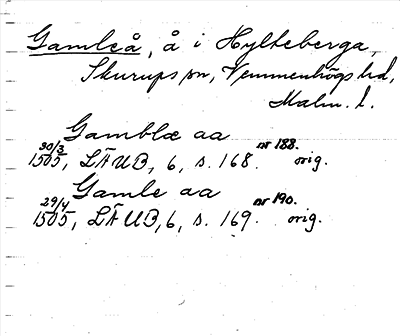 Gamleå, å i Hylteberga,
Skurups sn, Vemmenhögs hd,
Malm. l.
Gamblæ aa
30/3 1505, LÄUB, 6, s. 168. nr 188. orig.
Gamle aa
29/4 1505, LÄUB, 6, s. 169. nr 190. orig.